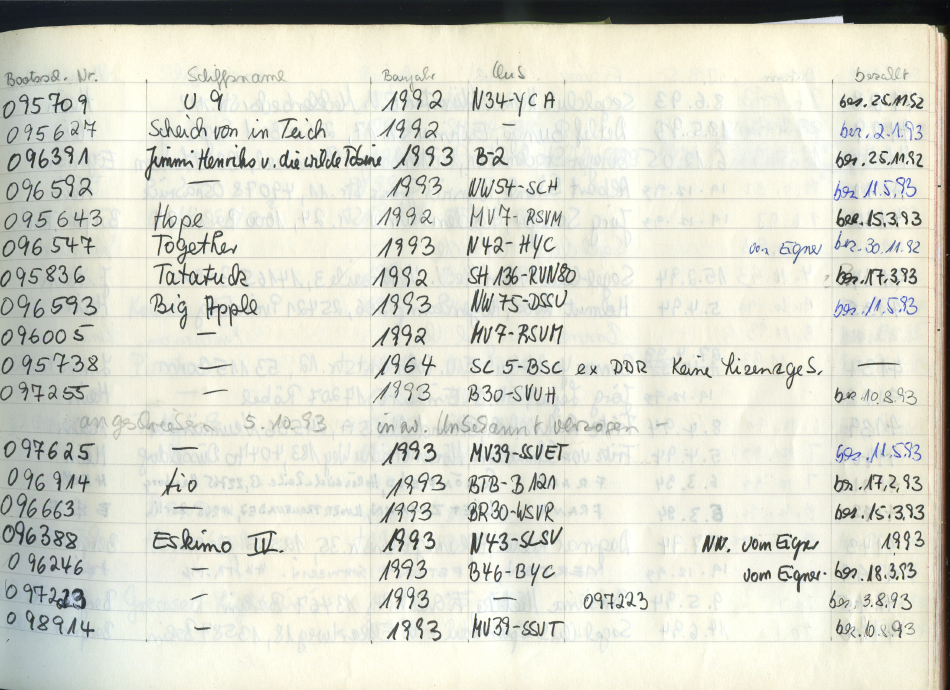 Bootssch. Nr. Schiffsname Baujahr Club bezahlt
095709 U 9 1992 N34-YCA bez. 26.11.92
095627 Scheich von in Teich 1992 — bez. 2.1.93
096391 Jimmi Henriks u. die wilde Tobine 1993 B-2 bez. 25.11.92
096592 — 1993 NW54-SCH bez. 11.5.93
095643 Hope 1992 MV7-RSVM bez. 15.3.93
096547 Together 1993 N42-HYC von Eigner bez. 30.11.92
095836 Tatatuck 1992 SH 136-RVN80 bez. 17.3.93
096593 Big Apple 1993 NW 75-DSSV bez. 11.5.93
096005 — 1992 MV7-RSVM
095738 — 1964 SC 5-BSC ex DDR Keine Lizenzgeb. —
097255 — 1993 B30-SVUH bez. 10.8.93
angeschrieben 5.10.93 unbekannt verzogen —
097625 — 1993 MV39-SSVET bez. 11.5.93
096914 1993 BTB-B121 bez. 17.2.93
096663 — 1993 BR30-WSVR bez. 15.3.93
096388 Eskimo IV. 1993 N43-SLSV NN. vom Eigner 1993
096246 — 1993 B46-BYC vom Eigner. bez. 18.3.93
097223 — 1993 — 097223 bez. 3.8.93
098914 1993 MV39-SSVT bez. 10.8.93